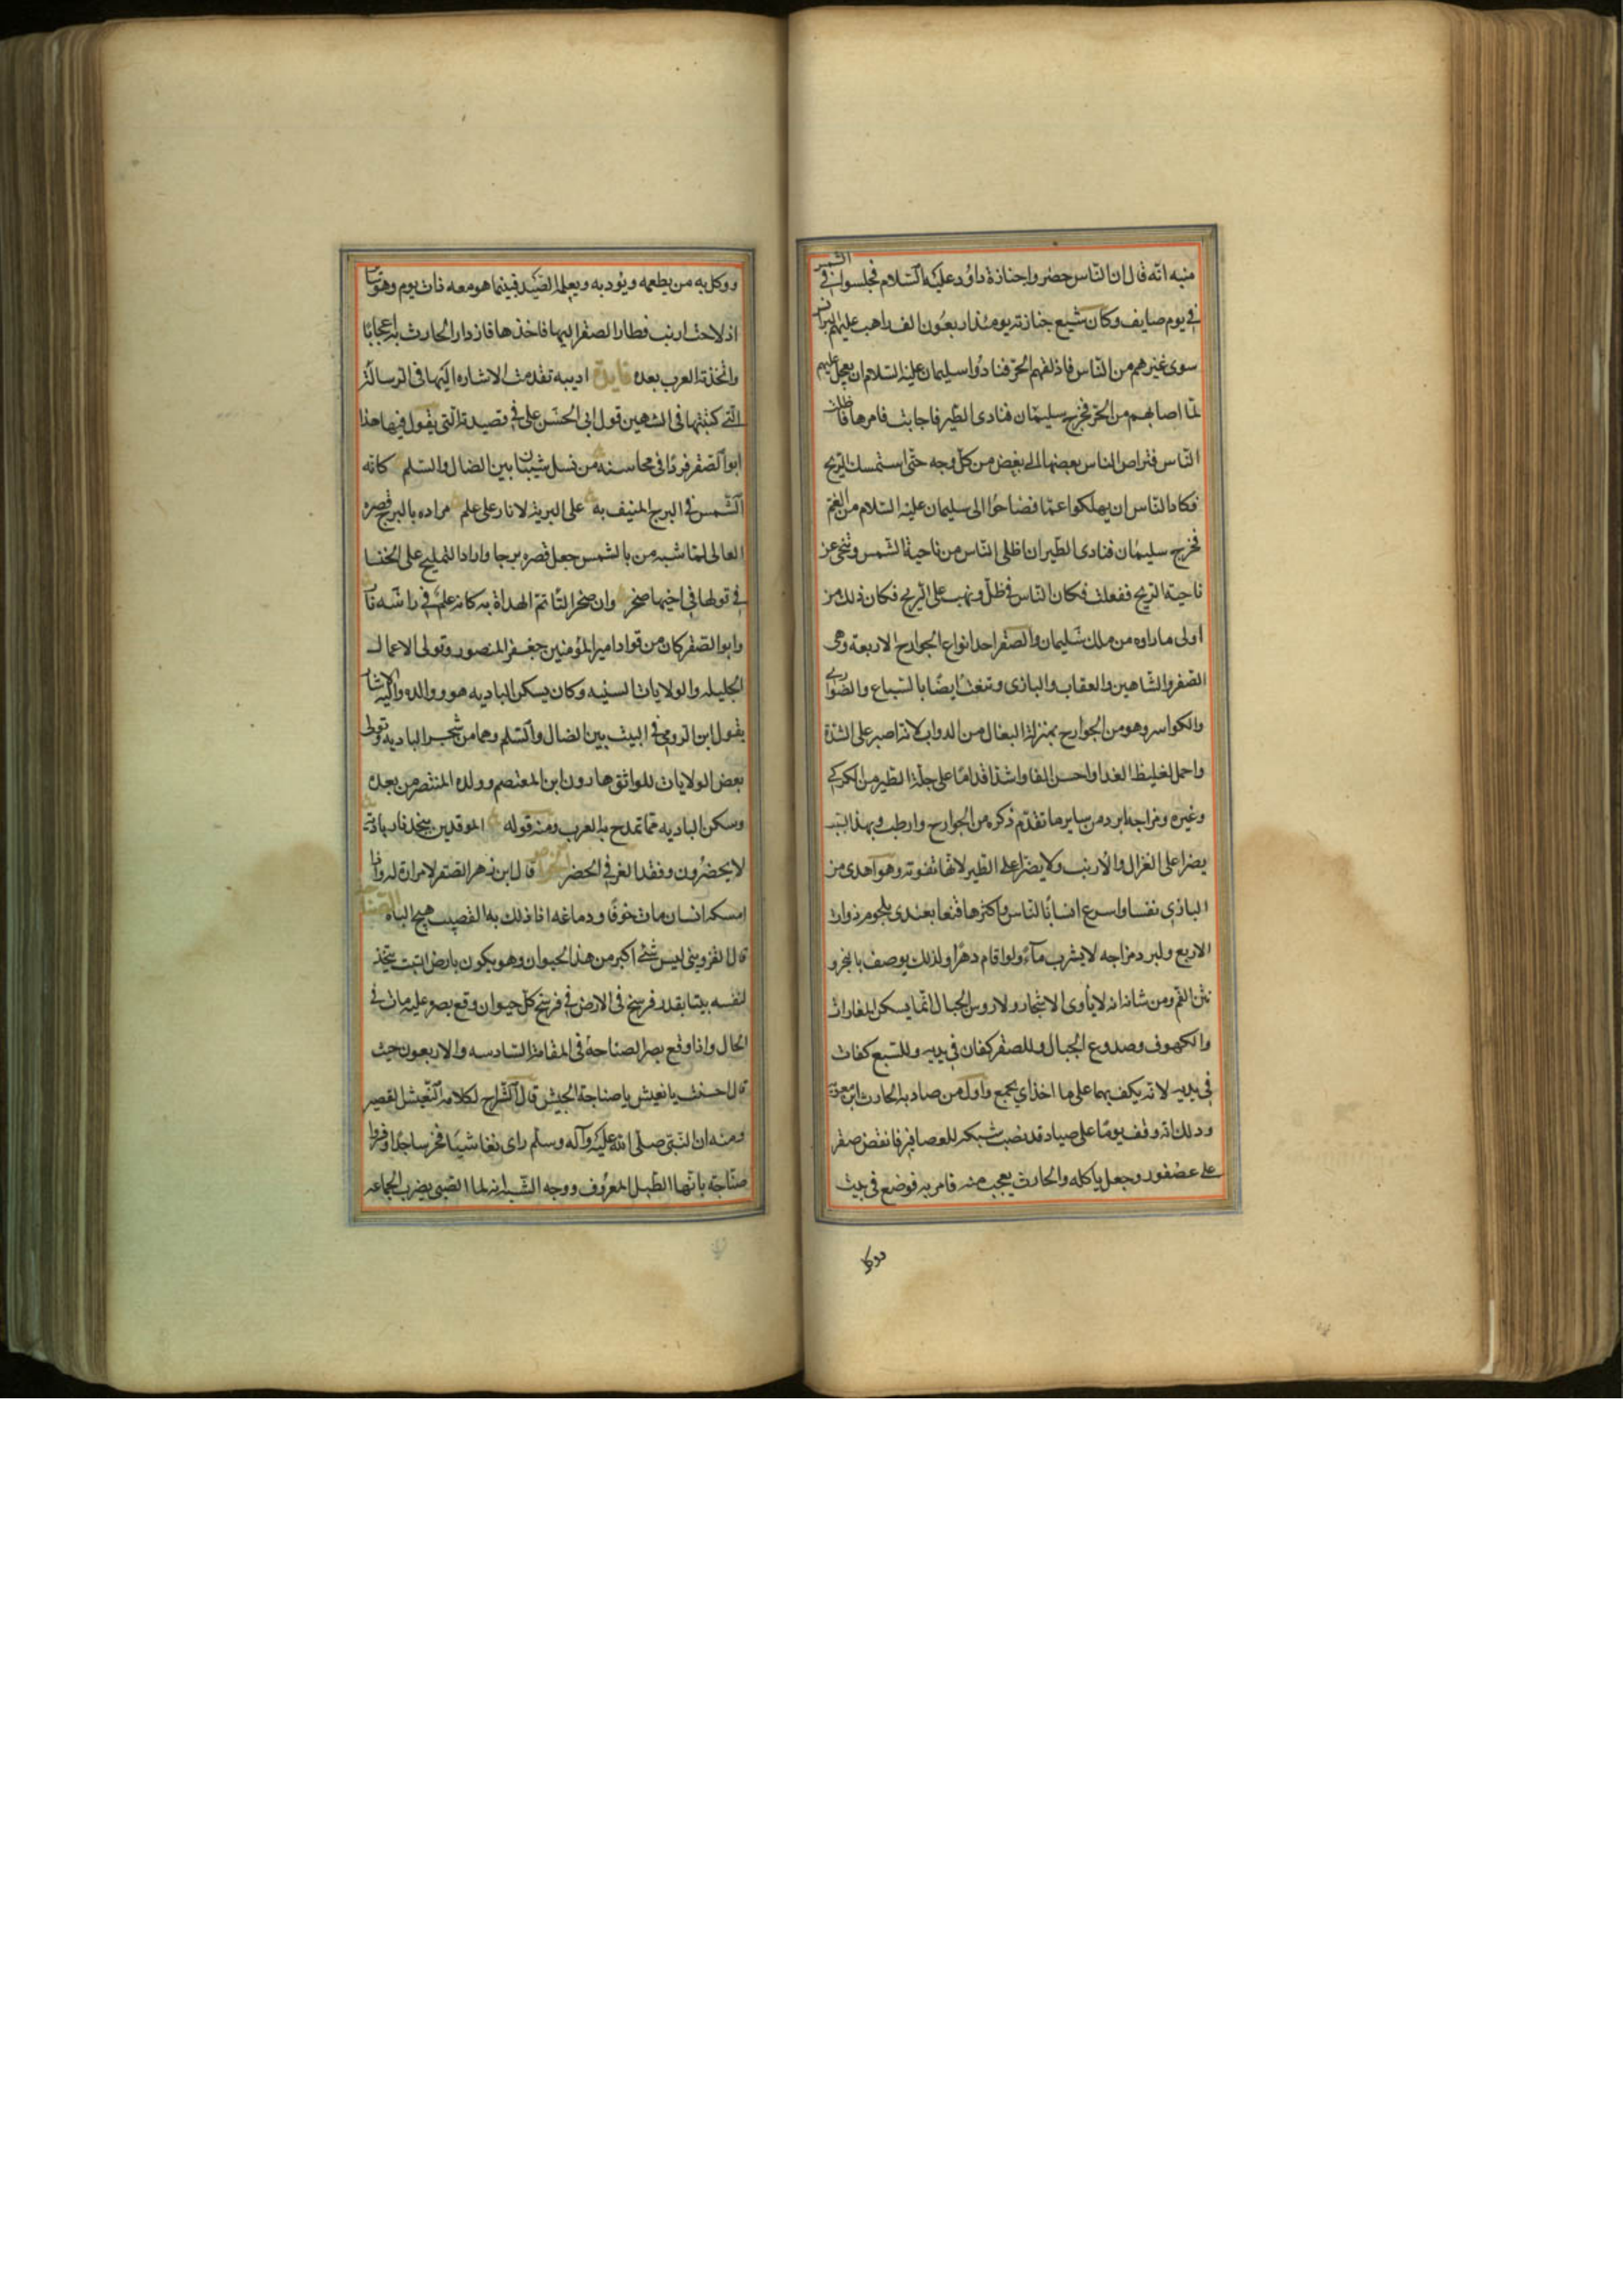 منبه انه قال ان الناس حضروا جنازة داود عليه السلام فجلسوا في الشمس
في يوم صايف وكان شيع جنازته يومئذ اربعون الف راهب عليهم البرانس
سوى غيرهم من الناس فاذلقهم الحر فنادوا سليمان عليه السلام ان يعجل عليهم
لما اصابهم من الحر فخرج سليمان فنادى الطير فاجابت فامرها فاظلت
الناس فتراص الناس بعضها الى بعض من كل وجه حتى استمسك الريح
فكاد الناس ان يهلكوا غما فصاحوا الى سليمان عليه السلام من الغم
فخرج سليمان فنادى الطير ان اظلى الناس من ناحية الشمس وتنحى عن
ناحية الريح ففعلت فكان الناس في ظل وتهب على الريح فكان ذلك من
اولى ما راوه من ملك سليمان والصقر احد انواع الجوارح الاربعة وهى
الصقر والشاهين والعقاب والبازى وتنعت ايضا بالسباع والضوارى
والكواسر وهو من الجوارح بمنزلة البغال من الدواب لانه اصبر على الشدة
واحمل لغليظ الغدا واحسن الفا واشد اقداما على جلة الطير من الكركى
وغيره ومزاجه ابرد من ساير ما تقدم ذكره من الجوارح وارطب وبهذا السبب
يضرا على الغزال والارنب ولا يضرا على الطير لانها تفوته وهو اهدى من
البازى نفسا واسرع انسا بالناس واكثرها قنعا يغتدى بلحوم ذوات
الاربع ولبرد مزاجه لا يشرب ماء ولو اقام دهرا ولذلك يوصف بالبخر و
نتن الفم ومن شانه انه لا يأوى الاشجار ولا روس الجبال انما يسكن المغارات
والكهوف وصدوع الجبال وللصقر كفان في يديه وللسبع كفات
في يديه لانه يكف بهما على ما اخذ اي يجمع واول من صاد به الحارث ابن معوية
وذلك انه وقف يوما على صياد قد نصب شبكة للعصافير فانقض صقر
على عصفور وجعل ياكله والحارث يعجب منه فامر به فوضع في بيت
ووكل
ووكل به من يطعمه ويؤدبه ويعلمه الصيد فبينما هو معه ذات يوم وهو
اذ لاحت ارنب فطار الصقر اليها فاخذها فازداد الحارث به اعجابا
واتخذته العرب بعده فايدة ادبيه تقدمت الاشاره اليها في الرسالة
التي كتبتها في الشاهين قول ابى الحسن على في قصيدة التي يقول فيها هذا
ابو الصقر فردا في محاسنه من نسل شيبان بين الضال والسلم كانه
الشمس في البرج المنيف به على البرية لا نار على علم مراده بالبرج قصره
العالى لما شبه من بالشمس جعل قصره برجا واراد التمليح على الخنسا
في قولها في اخيها صخر وان صخرا لتاتم الهداة به كانه علم في راسه نار
وابو الصقر كان من قواد امير المؤمنين جعفر المنصور وتولى الاعمال
الجليله والولايات السنيه وكان يسكن الباديه هو ووالده واليه الاشار
يقول ابن الرومى في البيت بين الضال والسلم وهما من شجر الباديه وتولى
بعض الولايات للواثق هارون ابن المعتصم وولده المنتصر من بعده
وسكن الباديه مما تمدح به العرب ومنه قوله الموقدين بنجد نار بادية
لا يحضرون وفقد العز في الحضر الخواص قال ابن زهر الصقر لا مرارة له واذا
امسكه انسان مات خوفا ودماغه اذا ذلك به القضيب هيج الباه الصناجه
قال القزوينى ليس شئ اكبر من هذا الحيوان وهو يكون بارض التبت يتخذ
لنفسه بيتا بقدر فرسخ في الارض في فرسخ كل حيوان وقع بصره عليه مات في
الحال واذا وقع بصر الصناجه في المقامة السادسه والاربعون حيث
قال احسنت يا نغيش يا صناجة الجيش قال الشراح لكلامه النغيش القصير
ومنه ان النبى صلى الله عليه وآله وسلم راى نغاشيا فخر ساجدا وفروا
صناجة بانها الطبل المعروف ووجه الشبه انه لما الصبى يضرب الجماعه